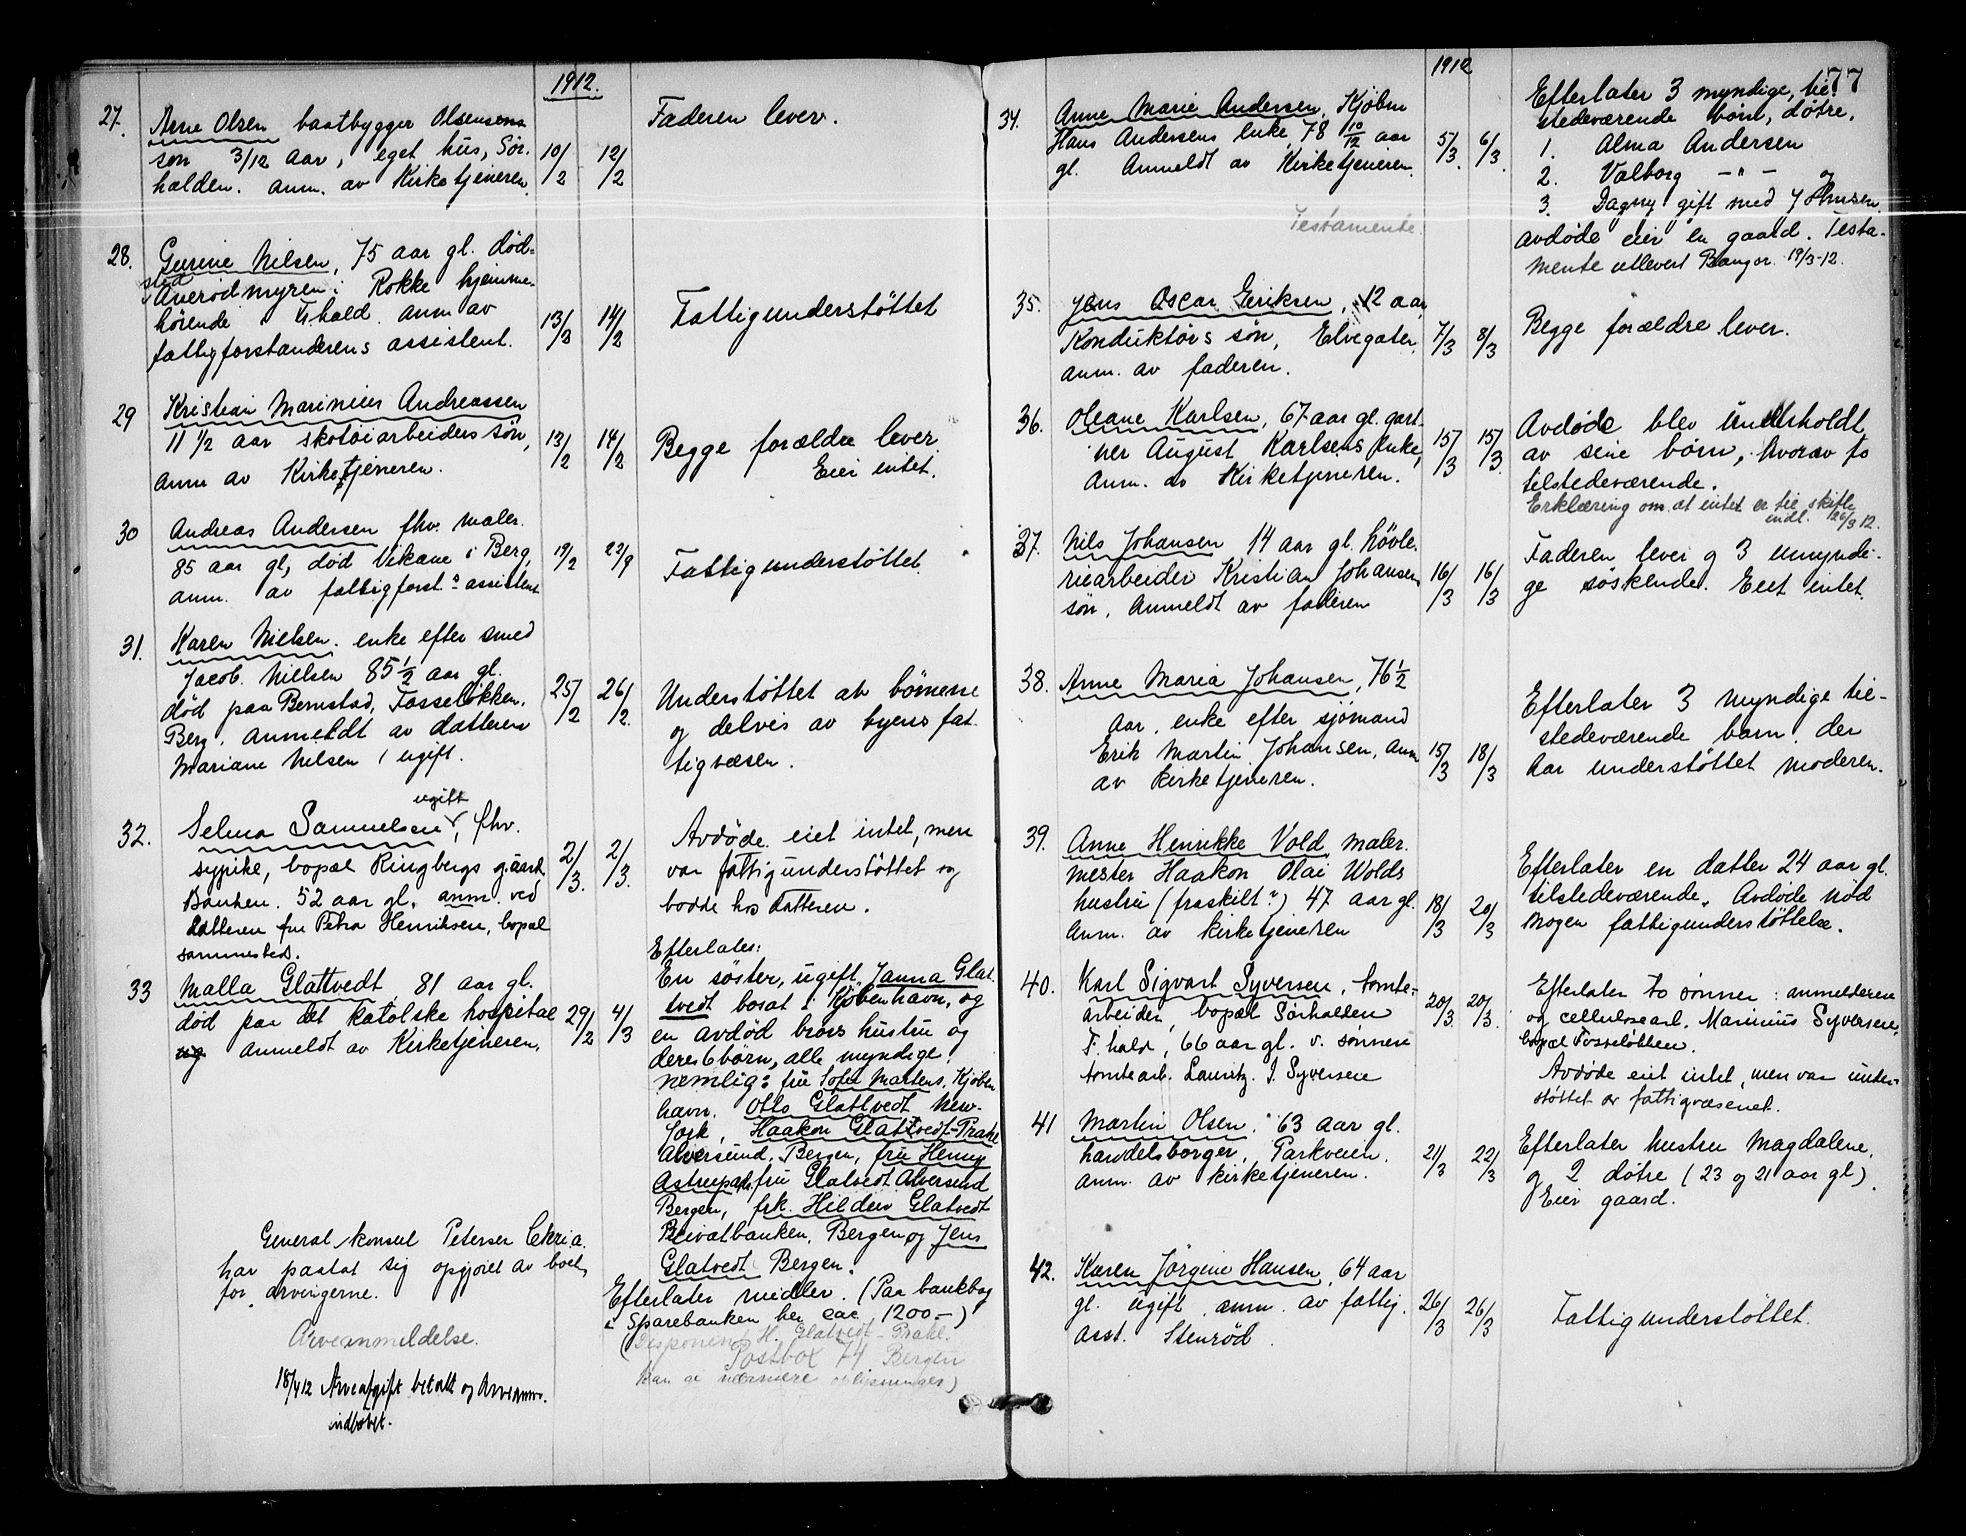 1912.
27. Arne Olsen baatbygger Olsensens
søn 3/12 aar, eget hus, Sør-
halden. anm. av Kirketjeneren. 10/2 12/2
Faderen lever.
28. Gurine Nilsen, 75 aar gl. død-
sted
Averødmyren i Rokke hjemme-
hørende i Fr.hald. anm av
fattigforstanderens assistent. 13/2 14/2
Fattigunderstøttet
29 Kristian Marinius Andreassen
11 1/2 aar skotøiarbeiders søn,
anm av Kirketjeneren. 13/2 14/2
Begge forældre lever.
Eier intet.
30 Andreas Andersen fhv. maler.
85 aar gl, død Vikane i Berg,
anm. av fattigforst.s assistent 19/2 22/2
Fattigunderstøttet.
31. Karen Nielsen. enke efter smed
Jacob Nielsen 85 1/2 aar gl.
død paa Bernstad, Fosseløkken.
Berg. anmeldt av datteren
Mariane Nilsen, ugift. 25/2 26/2.
Understøttet av børnene
og delvis av byens fat-
tigvæsen.
32. ugift
Selma Samuelsen, fhv.
sypike, bopæl Ringbergs gaard,
Banken. 52 aar gl. anm. ved
datteren fru Petra Henriksen, bopæl
sammested. 2/3. 2/3.
Avdøde eiet intet, men
var fattigunderstøttet og
bodde hos datteren.
33 Malla Glattvedt, 81 aar gl.
død paa det katolske hospital
anmeldt av Kirketjeneren. 29/2 4/3
Efterlater:
En søster, ugift, Janna Glat-
tvedt bosat i Kjøbenhavn, og
en avdød brors hustru og
deres 6 børn, alle myndige,
nemlig: fru Sofie Martens, Kjøben-
havn. Otto Glattvedt New-
York, Haakon Glattvedt-Prahl
Alversund, Bergen, fru Henny
Astrup f. Glatvedt Alversund
Bergen, frk. Hildur Glatvedt
Privatbanken, Bergen og Jens
Glatvedt Bergen.
Efterlater midler. (Paa bankbog
i Sparebanken her ca. 1200.-)
(Disponent H. Glatvedt-Prahl.
Postbox 74 Bergen
kan gi nærmere oplysninger)
General konsul Petersen Chria.
har paatat sig opgjøret av boet
for arvingerne.
Arveanmeldelse.
18/4 12 Arveafgift betalt og Arveanm.
indbetet.
1912
77
34. Anne Marie Andersen, Kjøbm
Hans Andersens enke, 78 10/12 aar
gl. Anmeldt av Kirketjeneren. 5/3. 6/3.
Testamente.
Efterlater 3 myndige, til
stedeværende børn, døtre.
1. Alma Andersen
2. Valborg - " -
3. Dagny gift med J Johnsen.
Avdøde eier en gaard. Testa-
mente utlevert Bangor. 19/3-12.
35. Jens Oscar Eriksen, 12 aar
Konduktørs søn, Elvegaten,
anm. av faderen. 7/3 8/3
Begge forældre lever.
36. Oleane Karlsen, 67 aar gl. gart-
ner August Karlsens Enke,
Anm. av Kirketjeneren. 15/3 15/3.
Avdøde blev underholdt
av sine børn, hvorav to
tilstedeværende.
Erklæring om at intet er til skifte
indl. 26/3 12.
37. Nils Johansen 14 aar gl. høvle-
riarbeider Kristian Johansens
søn. Anmeldt av faderen 16/3 16/3
Faderen lever og 3 umyndi-
ge søskende. Eiet intet.
38. Anne Maria Johansen, 76 1/2
aar, enke efter sjømand
Erik Martin Johansen, anm
av kirketjeneren. 15/3 18/3
Efterlater 3 myndige til-
stedeværende barn. der
har understøttet moderen.
39. Anne Henrikke Vold maler-
mester Haakon Olai Wolds
hustru (fraskilt?) 47 aar gl.
Anm. av kirketjeneren 18/3 20/3
Efterlater en datter 24 aar gl.
tilstedeværende. Avdøde nød
nogen fattigunderstøttelse.
40. Karl Sigvart Syversen, tomte-
arbeider, bopæl Sørhalden
F.hald, 66 aar gl. v. sønnen
tomtearb. Lauritz. S. Syversen 20/3. 20/3.
Efterlater to sønner: anmelderen
og cellulosearb. Marinius Syversen,
bopæl Fosseløkken.
Avdøde eiet intet, men var under-
støttet av fattigvæsenet.
41 Martin Olsen. 63 aar gl.
handelsborger, Parkveien.
anm. av kirketjeneren. 21/3 22/3
Efterlater hustru Magdalene,
og 2 døtre (23 og 21 aar gl).
Eier gaard.
42. Karen Jørgine Hansen, 64 aar
gl. ugift anm. av fattig.
asst. Stenrød. 26/3 26/3
Fattigunderstøttet.